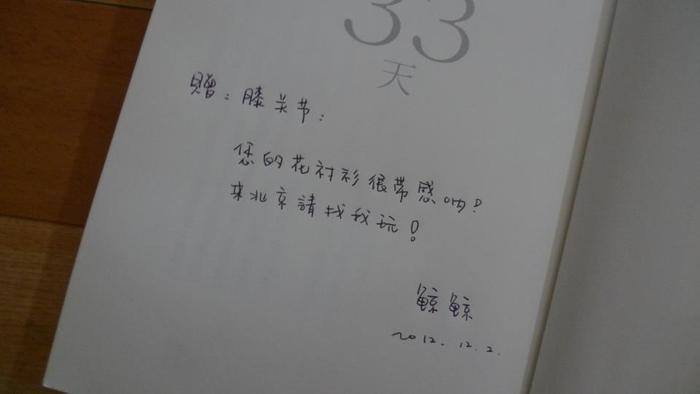 33
天
赠：膝关节：
您的花衬衫很带感呐！
来北京請找我玩！
鲸鲸
2012.12.2.